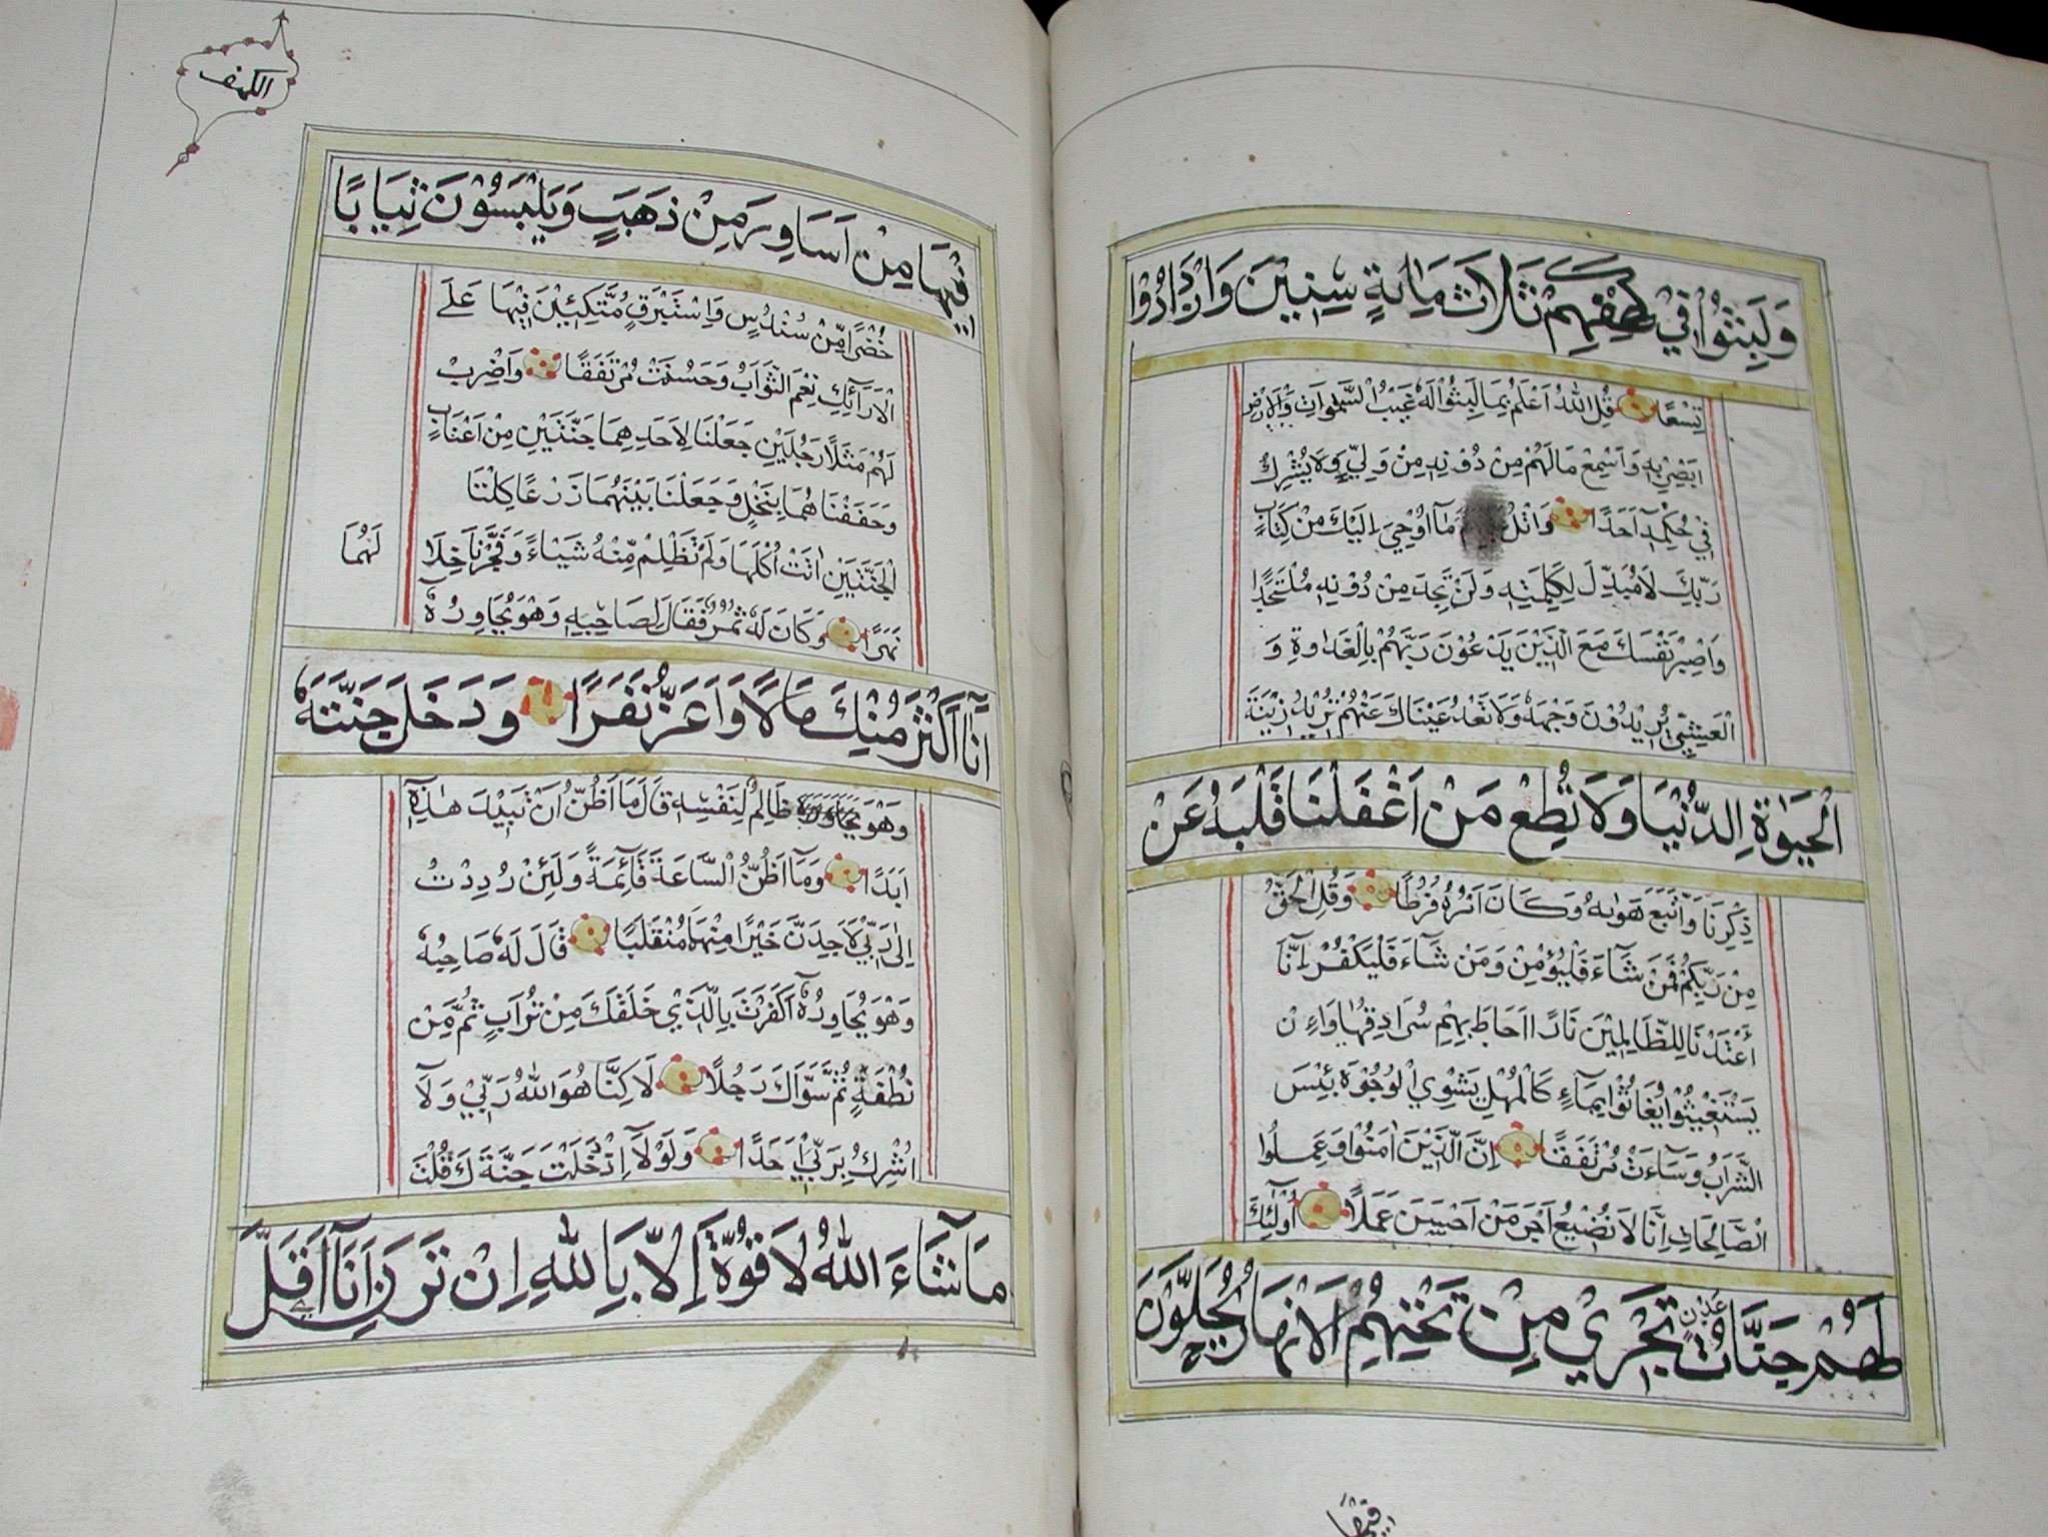 وَلَبِثُوْا فِيْ كَهْفِهِمْ ثَلَاثَ مَائَةٍ سِنِيْنَ وَازْدَادُوْا
تِسْعًا قُلِ اللّٰهُ اَعْلَمُ بِمَا لَبِثُوْا لَهٗ غَيْبُ السَّمٰوَاتِ وَالْاَرْضِ
اَبْصِرْ بِهٖ وَاَسْمِعْ مَا لَهُمْ مِنْ دُوْنِهٖ مِنْ وَلِيٍّ وَلَا يُشْرِكُ
فِيْ حُكْمِهٖٓ اَحَدًا وَاتْلُ مَآ اُوْحِيَ اِلَيْكَ مِنْ كِتَابِ
رَبِّكَ لَا مُبَدِّلَ لِكَلِمٰتِهٖ وَلَنْ تَجِدَ مِنْ دُوْنِهٖ مُلْتَحَدًا
وَاصْبِرْ نَفْسَكَ مَعَ الَّذِيْنَ يَدْعُوْنَ رَبَّهُمْ بِالْغَدٰوةِ وَ
الْعَشِيِّ يُرِيْدُوْنَ وَجْهَهٗ وَلَا تَعْدُ عَيْنَاكَ عَنْهُمْ تُرِيْدُ زِيْنَةَ
الْحَيٰوةِ الدُّنْيَا وَلَا تُطِعْ مَنْ اَغْفَلْنَا قَلْبَهٗ عَنْ
ذِكْرِنَا وَاتَّبَعَ هَوٰىهُ وَكَانَ اَمْرُهٗ فُرُطًا وَقُلِ الْحَقُّ
مِنْ رَبِّكُمْ فَمَنْ شَآءَ فَلْيُؤْمِنْ وَمَنْ شَآءَ فَلْيَكْفُرْ اِنَّآ
اَعْتَدْنَا لِلظَّالِمِيْنَ نَارًا اَحَاطَ بِهِمْ سُرَادِقُهَا وَاِنْ
يَسْتَغِيْثُوْا يُغَاثُوْا بِمَآءٍ كَالْمُهْلِ يَشْوِي الْوُجُوْهَ بِئْسَ
الشَّرَابُ وَسَآءَتْ مُرْتَفَقًا اِنَّ الَّذِيْنَ اٰمَنُوْا وَعَمِلُوا
الصَّالِحَاتِ اِنَّا لَا نُضِيْعُ اَجْرَ مَنْ اَحْسَنَ عَمَلًا اُولٰٓئِكَ
لَهُمْ جَنَّاتُ عَدْنٍ تَجْرِيْ مِنْ تَحْتِهِمُ الْاَنْهَارُ يُحَلَّوْنَ
فِيْهَا
الكهف
فِيْهَا مِنْ اَسَاوِرَ مِنْ ذَهَبٍ وَيَلْبَسُوْنَ ثِيَابًا
خُضْرًا مِّنْ سُنْدُسٍ وَاِسْتَبْرَقٍ مُتَّكِئِيْنَ فِيْهَا عَلَى
الْاَرَآئِكِ نِعْمَ الثَّوَابُ وَحَسُنَتْ مُرْتَفَقًا وَاضْرِبْ
لَهُمْ مَثَلًا رَجُلَيْنِ جَعَلْنَا لِاَحَدِهِمَا جَنَّتَيْنِ مِنْ اَعْنَابٍ
وَحَفَفْنَاهُمَا بِنَخْلٍ وَجَعَلْنَا بَيْنَهُمَا زَرْعًا كِلْتَا
الْجَنَّتَيْنِ اٰتَتْ اُكُلَهَا وَلَمْ تَظْلِمْ مِّنْهُ شَيْـًٔا وَفَجَّرْنَا خِلَالَهُمَا
نَهَرًا وَكَانَ لَهٗ ثَمَرٌ فَقَالَ لِصَاحِبِهٖ وَهُوَ يُحَاوِرُهٗٓ
اَنَا اَكْثَرُ مِنْكَ مَالًا وَاَعَزُّ نَفَرًا وَدَخَلَ جَنَّتَهٗ
وَهُوَ ظَالِمٌ لِنَفْسِهٖ قَالَ مَا اَظُنُّ اَنْ تَبِيْدَ هٰذِهٖٓ
اَبَدًا وَمَآ اَظُنُّ السَّاعَةَ قَآئِمَةً وَلَئِنْ رُدِدْتُ
اِلٰى رَبِّيْ لَاَجِدَنَّ خَيْرًا مِنْهَا مُنْقَلَبًا قَالَ لَهٗ صَاحِبُهٗ
وَهُوَ يُحَاوِرُهٗٓ اَكَفَرْتَ بِالَّذِيْ خَلَقَكَ مِنْ تُرَابٍ ثُمَّ مِنْ
نُطْفَةٍ ثُمَّ سَوَّاكَ رَجُلًا لٰكِنَّا هُوَ اللّٰهُ رَبِّيْ وَلَآ
اُشْرِكُ بِرَبِّيْٓ اَحَدًا وَلَوْلَآ اِذْ دَخَلْتَ جَنَّتَكَ قُلْتَ
مَا شَآءَ اللّٰهُ لَا قُوَّةَ اِلَّا بِاللّٰهِ اِنْ تَرَنِ اَنَا اَقَلَّ